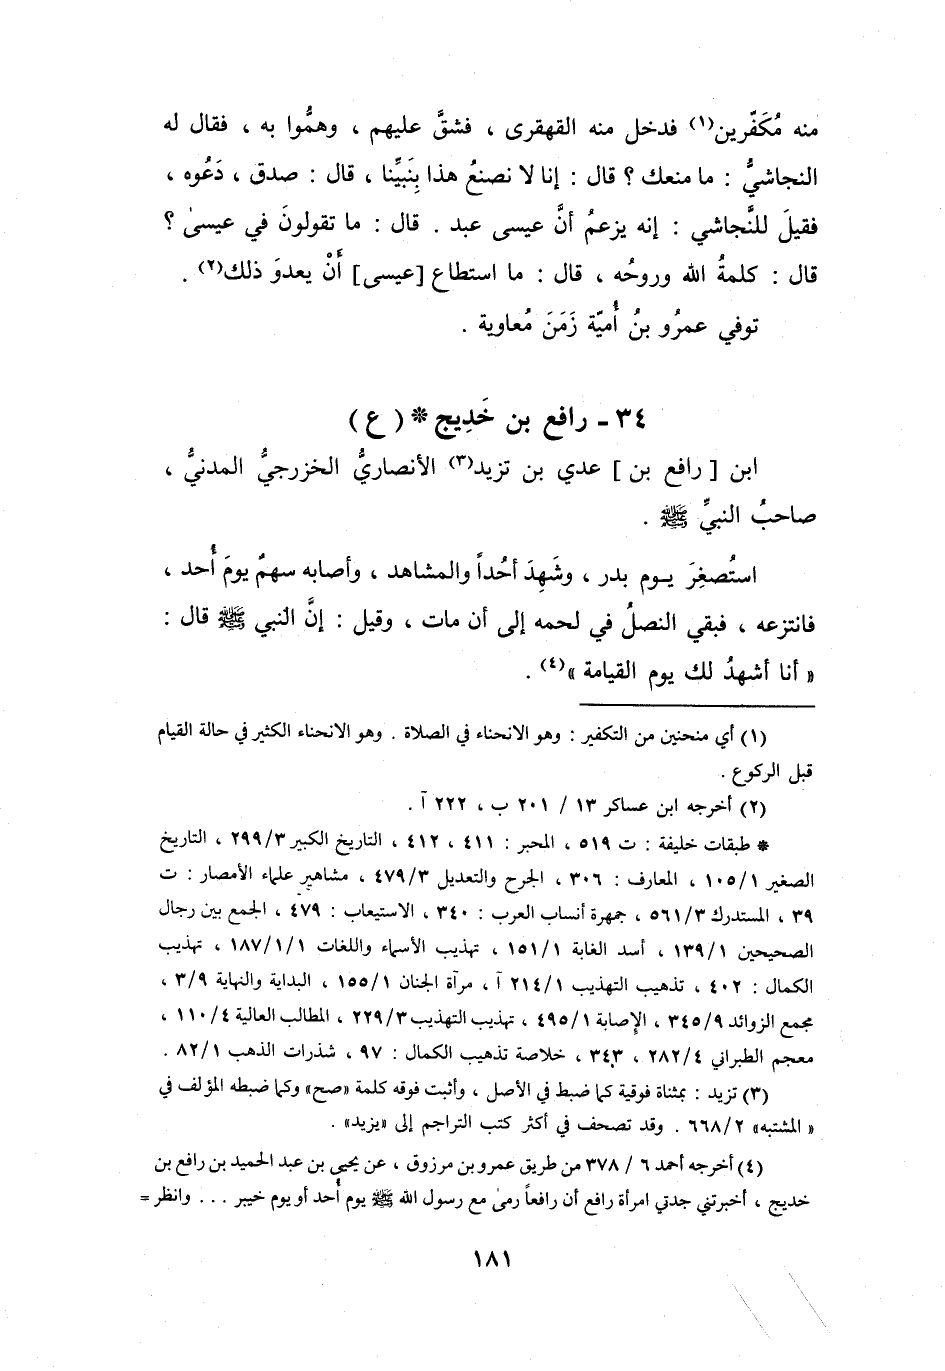 منه مُكَفّرين(١) فدخل منه القهقرى ، فشقَّ عليهم ، وهمُّوا به ، فقال له
النجاشيُّ : ما منعك ؟ قال : إنا لا نصنعُ هذا بِنَبيِّنا ، قال : صدق ، دَعُوه ،
فقيلَ للنَّجاشي : إنه يزعمُ أنَّ عيسى عبد . قال : ما تقولونَ في عيسىٰ ؟
قال : كلمةُ الله وروحُه ، قال : ما استطاع [عيسى] أَنْ يعدوَ ذلك(٢) .
توفي عمرُو بنُ أُميّة زَمَنَ مُعاوية .
٣٤ - رافع بن خَدِيج * ( ع )
ابن [ رافع بن ] عدي بن تزيد(٣) الأنصاريُّ الخزرجيُّ المدنيُّ ،
صاحبُ النبيِّ ﷺ .
استُصغِرَ يـوم بدر ، وشَهِدَ أحُداً والمشاهد ، وأصابه سهمٌ يومَ أُحد ،
فانتزعه ، فبقي النصلُ في لحمه إلى أن مات ، وقيل : إنَّ النبي ﷺ قال :
« أنا أشهدُ لك يوم القيامة »(٤) .
(١) أي منحنين من التكفير : وهو الانحناء في الصلاة . وهو الانحناء الكثير في حالة القيام
قبل الركوع .
(٢) أخرجه ابن عساكر ١٣ / ٢٠١ ب ، ٢٢٢ آ .
* طبقات خليفة : ت ٥١٩ ، المحبر : ٤١١ ، ٤١٢ ، التاريخ الكبير ٢٩٩/٣ ، التاريخ
الصغير ١٠٥/١ ، المعارف : ٣٠٦ ، الجرح والتعديل ٤٧٩/٣ ، مشاهير علماء الأمصار : ت
٣٩ ، المستدرك ٥٦١/٣ ، جمهرة أنساب العرب : ٣٤٠ ، الاستيعاب : ٤٧٩ ، الجمع بين رجال
الصحيحين ١٣٩/١ ، أسد الغابة ١٥١/١ ، تهذيب الأسماء واللغات ١٨٧/١/١ ، تهذيب
الكمال : ٤٠٢ ، تذهيب التهذيب ٢١٤/١ آ ، مرآة الجنان ١٥٥/١ ، البداية والنهاية ٣/٩ ،
مجمع الزوائد ٣٤٥/٩ ، الإصابة ٤٩٥/١ ، تهذيب التهذيب ٢٢٩/٣ ، المطالب العالية ١١٠/٤ ،
معجم الطبراني ٢٨٢/٤ ، ٣٤٣ ، خلاصة تذهيب الكمال : ٩٧ ، شذرات الذهب ٨٢/١ .
(٣) تزيد : بمثناة فوقية كما ضبط في الأصل ، وأثبت فوقه كلمة «صح» وكما ضبطه المؤلف في
« المشتبه» ٦٦٨/٢ . وقد تصحف في أكثر كتب التراجم إلى «يزيد» .
(٤) أخرجه أحمد ٦ / ٣٧٨ من طريق عمرو بن مرزوق ، عن يحيى بن عبد الحميد بن رافع بن
خديج ، أخبرتني جدتي امرأة رافع أن رافعاً رمىٰ مع رسول الله ﷺ يوم أُحد أو يوم خيبر . . . وانظر =
١٨١